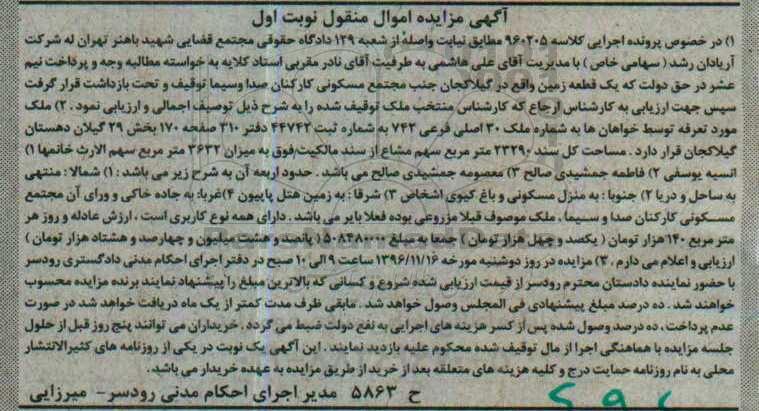 آگهی مزایده اموال منقول نوبت اول
۱) در خصوص پرونده اجرایی کلاسه ۹۶۰۲۰۵ مطابق نیابت واصله از شعبه ۱۲۹ دادگاه حقوقی مجتمع قضایی شهید باهنر تهران له شرکت
آریادان رشد ( سهامی خاص ) با مدیریت آقای علی هاشمی به طرفیت آقای نادر مقربی استاد کلایه به خواسته مطالبه وجه و پرداخت نیم
عشر در حق دولت که یک قطعه زمین واقع در گیلاکجان جنب مجتمع مسکونی کارکنان صدا وسیما توقیف و تحت بازداشت قرار گرفت
سپس جهت ارزیابی به کارشناس ارجاع که کارشناس منتخب ملک توقیف شده را به شرح ذیل توصیف اجمالی و ارزیابی نمود . ۲) ملک
مورد تعرفه توسط خواهان ها به شماره ملک ۳۰ اصلی فرعی ۷۴۳ به شماره ثبت ۴۴۷۴۲ دفتر ۳۱۰ صفحه ۱۷۰ بخش ۲۹ گیلان دهستان
گیلاکجان قرار دارد . مساحت کل سند ۲۳۲۹۰ متر مربع سهم مشاع از سند مالکیت فوق به میزان ۳۶۳۲ متر مربع سهم الارث خانمها ۱)
انسیه یوسفی ۲) فاطمه جمشیدی صالح ۳) معصومه جمشیدی صالح می باشد . حدود اربعه آن به شرح زیر می باشد : ۱) شمالا : منتهی
به ساحل و دریا ۲) جنوبا : به منزل مسکونی و باغ کیوی اشخاص ۳) شرقا : به زمین هتل پاپیون ۴) غربا: به جاده خاکی و ورای آن مجتمع
مسکونی کارکنان صدا و سیما . ملک موصوف قبلا مزروعی بوده فعلا بایر می باشد . دارای همه نوع کاربری است ، ارزش عادله و روز هر
متر مربع ۱۴۰ هزار تومان ( یکصد و چهل هزار تومان ) جمعا به مبلغ ۵۰۸۴۸۰۰۰۰ ( پانصد و هشت میلیون و چهارصد و هشتاد هزار تومان )
ارزیابی و اعلام می دارم . ۳) مزایده در روز دوشنبه مورخه ۱۳۹۶/۱۱/۱۶ ساعت ۹ الی ۱۰ صبح در دفتر اجرای احکام مدنی دادگستری رودسر
با حضور نماینده دادستان محترم رودسر از قیمت ارزیابی شده شروع و کسانی که بالاترین مبلغ را پیشنهاد نمایند برنده مزایده محسوب
خواهند شد . ده درصد مبلغ پیشنهادی فی المجلس وصول خواهد شد . مابقی ظرف مدت کمتر از یک ماه دریافت خواهد شد در صورت
عدم پرداخت ، ده درصد وصول شده پس از کسر هزینه های اجرایی به نفع دولت ضبط می گردد . خریداران می توانند پنج روز قبل از حلول
جلسه مزایده با هماهنگی اجرا از مال توقیف شده محکوم علیه بازدید نمایند . این آگهی یک نوبت در یکی از روزنامه های کثیرالانتشار
محلی به نام روزنامه حمایت درج و کلیه هزینه های متعلقه بعد از خرید از طریق مزایده به عهده خریدار می باشد.
ح ۵۸۶۳ مدیر اجرای احکام مدنی رودسر- میرزایی